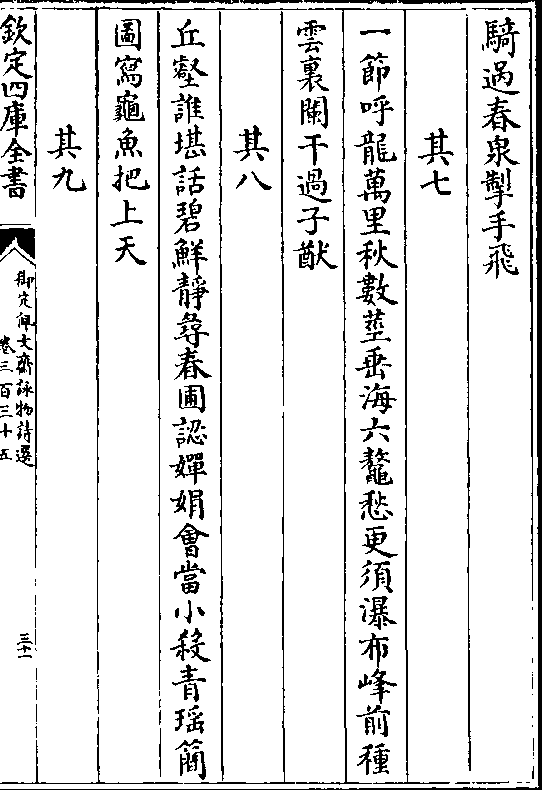 騎過春泉掣手飛
其七
一節呼龍萬里秋數莖垂海六鼇愁更須瀑布峰前種
雲裏闌干過子猷
其八
丘壑誰堪話碧鮮靜尋春圃認嬋娟會當小殺青瑶簡
圖寫龜魚把上天
其九
欽定四庫全書
御定佩文齋詠物詩選
卷三百三十五
三十一